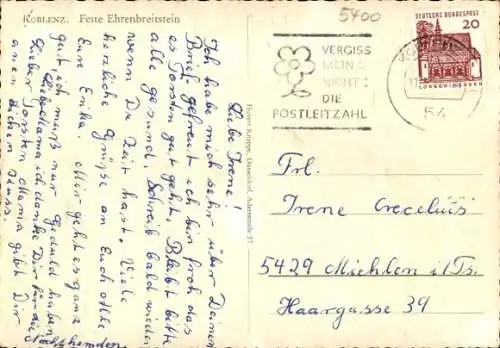 KOBLENZ. Feste Ehrenbreitstein
Liebe Irene!
Ich habe mich sehr über Deinen
Brief gefreut ich bin froh das
es Torsten gut geht. Bleibt bitte
alle gesund. Schreib bald wieder
wenn Du Zeit hast. Viele
herzliche Grüße an Euch alle
Eure Erika. Mir geht es ganz
gut, ich muß nur Geduld haben
Liebe Mama ich danke Dir für die
Nachthemden
Lieber Torsten Mama gibt Dir
einen dicken Kuss.
Hanns Krippe, Düsseldorf, Adersstraße 57
5400
VERGISS
MEIN
NICHT:
DIE
POSTLEITZAHL
54
DEUTSCHE BUNDESPOST
20
LORSCH/HESSEN
Frl.
Irene Crecelius
5429 Miehlen i/Ts.
Haargasse 39